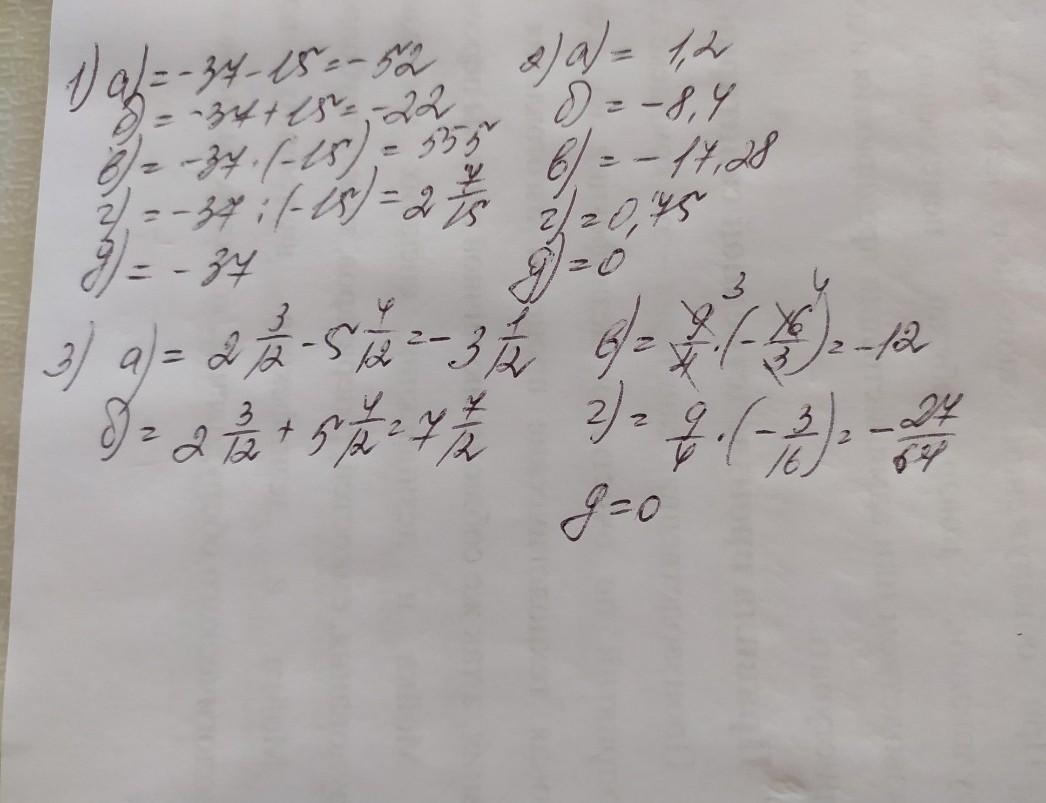 1) а) = -37-15=-52
б) = -37+15=-22
в) = -37·(-15) = 555
г) = -37:(-15) = 2 7/15
д) = -37
2) а) = 1,2
б) = -8,4
в) = -17,28
г) = 0,75
д) = 0
3) а) = 2 3/12 - 5 4/12 = -3 1/12
б) = 2 3/12 + 5 4/12 = 7 7/12
в) = 9/4 · (-16/3) = -12
3 4
г) = 9/4 · (-3/16) = -27/64
д = 0